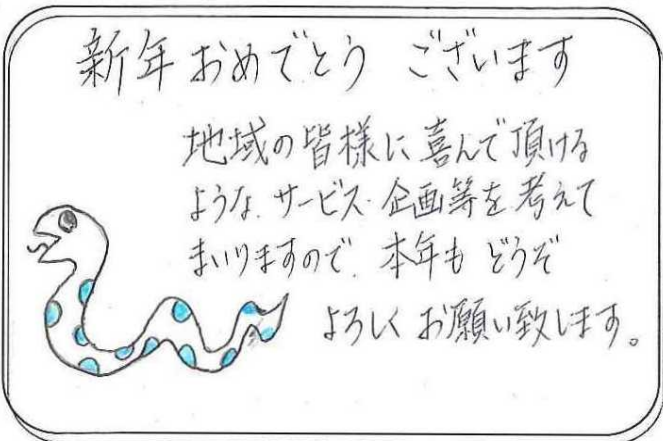 新年おめでとう ございます
地域の皆様に喜んで頂ける
ような、サービス・企画等を考えて
まいりますので、本年も どうぞ
よろしく お願い致します。